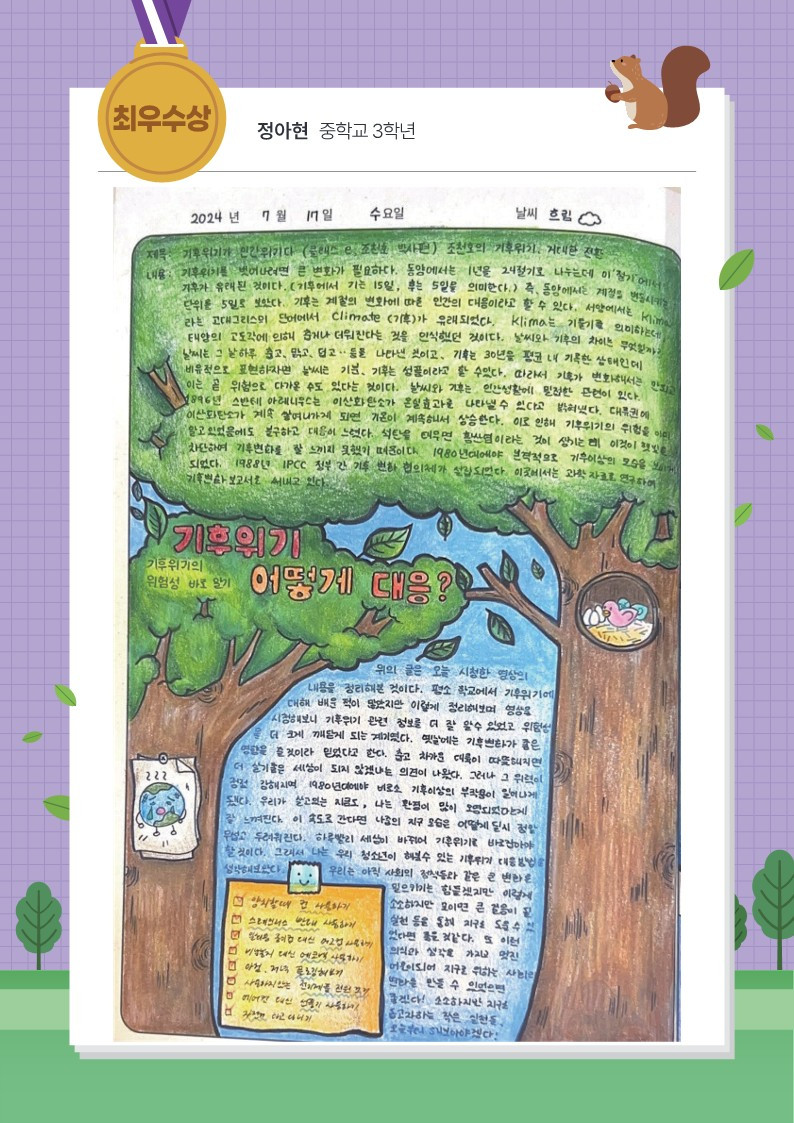 최우수상
정아현 중학교 3학년
2024 년 7 월 17 일 수요일 날씨 흐림
제목: 기후위기가 인간위기다 조천호의 기후위기, 거대한 전환
내용: 기후위기를 벗어나려면 큰 변화가 필요하다. 동양에서는 1년을 24절기로 나누는데 이 절기에서
기후가 유래된 것이다. (기후에서 기는 15일, 후는 5일을 의미한다.) 즉, 동양에서는 계절을 변동시키는
단위를 5일로 보았다. 기후는 계절의 변화에 따른 인간의 대응이라고 할 수 있다. 서양에서는 Klima
라는 고대그리스의 단어에서 Climate (기후)가 유래되었다. Klima는 기울기를 의미하는데
태양의 고도각에 의해 춥거나 더워진다는 것을 인식했던 것이다. 날씨와 기후의 차이는 무엇일까?
날씨는 그 날 하루 춥고, 맑고, 덥고‥등을 나타낸 것이고, 기후는 30년을 평균 내 기록한 상태인데
비유적으로 표현하자면 날씨는 기분, 기후는 성품이라고 할 수있다. 따라서 기후가 변화해서는 안되고
이는 곧 위험으로 다가올 수도 있다는 것이다. 날씨와 기후는 인간생활에 밀접한 관련이 있다.
1896년 스반테 아레니우스는 이산화탄소가 온실효과를 나타낼 수 있다고 밝혀냈다. 대류권에
이산화탄소가 계속 쌓여나가게 되면 기온이 계속해서 상승한다. 이로 인해 기후위기의 위험을 이미
알고있었음에도 불구하고 대응이 느렸다. 석탄을 태우면 황산염이라는 것이 생기는데 이것이 햇빛을
차단하여 기후변화를 잘 느끼지 못했기 때문이다. 1980년대에야 본격적으로 기후이상의 모습을 보이게
되었다. 1988년 IPCC 정부 간 기후 변화 협의체가 설립되었다. 이곳에서는 과학 자료로 연구하여
기후변화 보고서를 써내고 있다.
기후위기
기후위기의
위험성 바로 알기
어떻게 대응?
위의 글은 오늘 시청한 영상의
내용을 정리해본 것이다. 평소 학교에서 기후위기에
대해 배운 적이 많았지만 이렇게 정리해보며 영상을
시청해보니 기후위기 관련 정보를 더 잘 알수 있었고 위험성
을 더 크게 깨닫게 되는 계기였다. 옛날에는 기후변화가 좋은
영향을 줄것이라 믿었다고 한다. 춥고 차가운 대륙이 따뜻해지면
더 살기좋은 세상이 되지 않겠냐는 의견이 나왔다. 그러나 그 위력이
점점 강해지며 1980년대에야 비로소 기후이상의 부작용이 일어나게
됐다. 우리가 살고있는 지금도, 나는 환경이 많이 오염되었다는게
잘 느껴진다. 이 속도로 간다면 나중의 지구 모습은 어떻게 될지 정말
무섭고 두려워진다. 하루빨리 세상이 바뀌어 기후위기를 바로잡아야
할 것이다. 그래서 나는 우리 청소년이 해볼수 있는 기후위기 대응방법을
생각해보았다. 우리는 아직 사회의 정책들과 같은 큰 변화를
일으키기는 힘들겠지만 이렇게
소소하지만 모이면 큰 도움이 될
실천 등을 통해 지구를 도울 수 있
었다면 좋을 것같다. 또 이런
의식과 생각을 가지고 멋진
어른이되어 지구를 위하는 사회의
변화를 만들 수 있었으면
좋겠다! 소소하지만 지구를
돕고자하는 작은 실천들,
오늘부터 해봐야겠다!
zzz
양치할때 컵 사용하기
스테인리스 빨대 사용하기
일회용 종이컵 대신 머그컵 사용하기
비닐봉지 대신 에코백 사용하기
사용하지않는 전자제품 전원 끄기
에어컨 대신 선풍기 사용하기